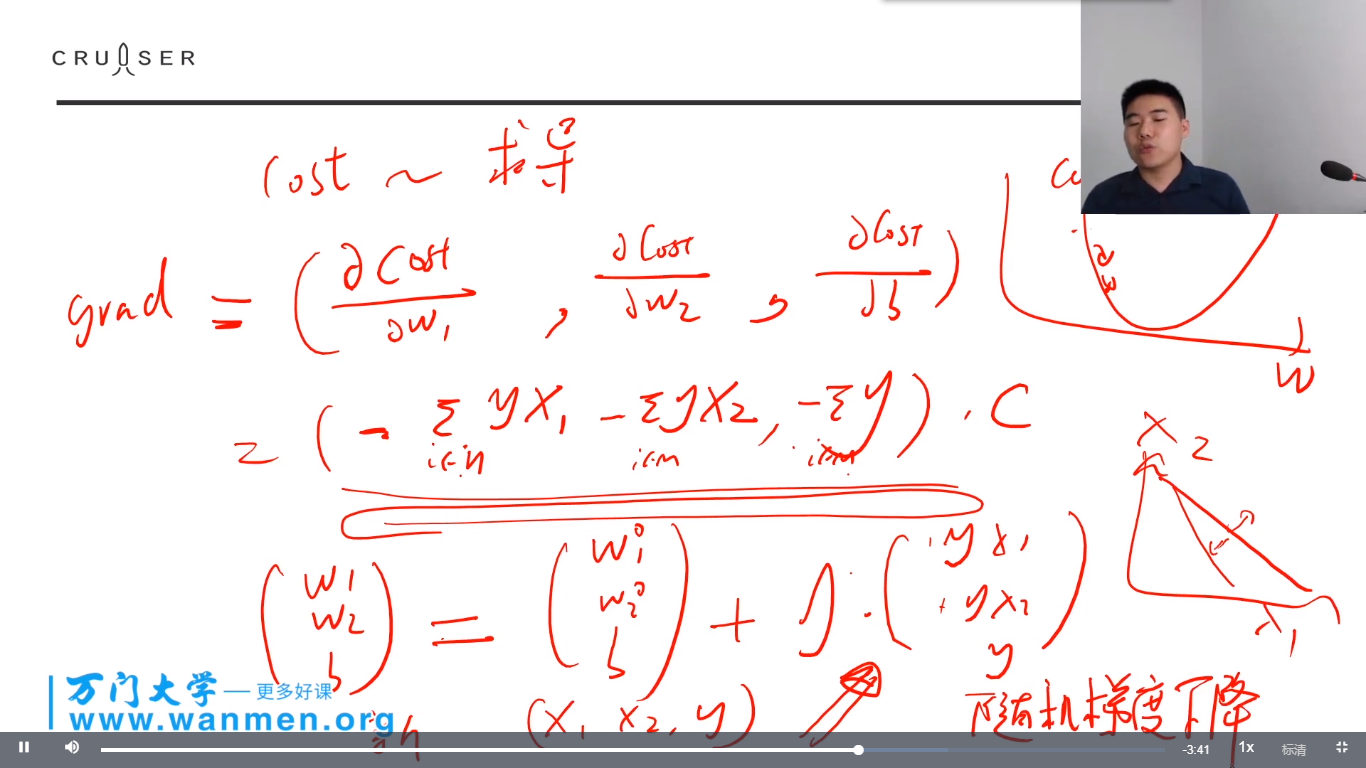 CRUISER
Cost ~ 求导
grad = (∂Cost/∂w1, ∂Cost/∂w2, ∂Cost/∂b)
= (-Σ yx1 -Σ yx2, -Σ y) · C
i∈n i∈n
(w1 w2 b) = (w1⁰ w2⁰ b) + · (yx1 + yx2 y)
(x1 x2, y)
随机梯度下降
w
x2
x1
万门大学 — 更多好课
www.wanmen.org
-3:41 1x 标清